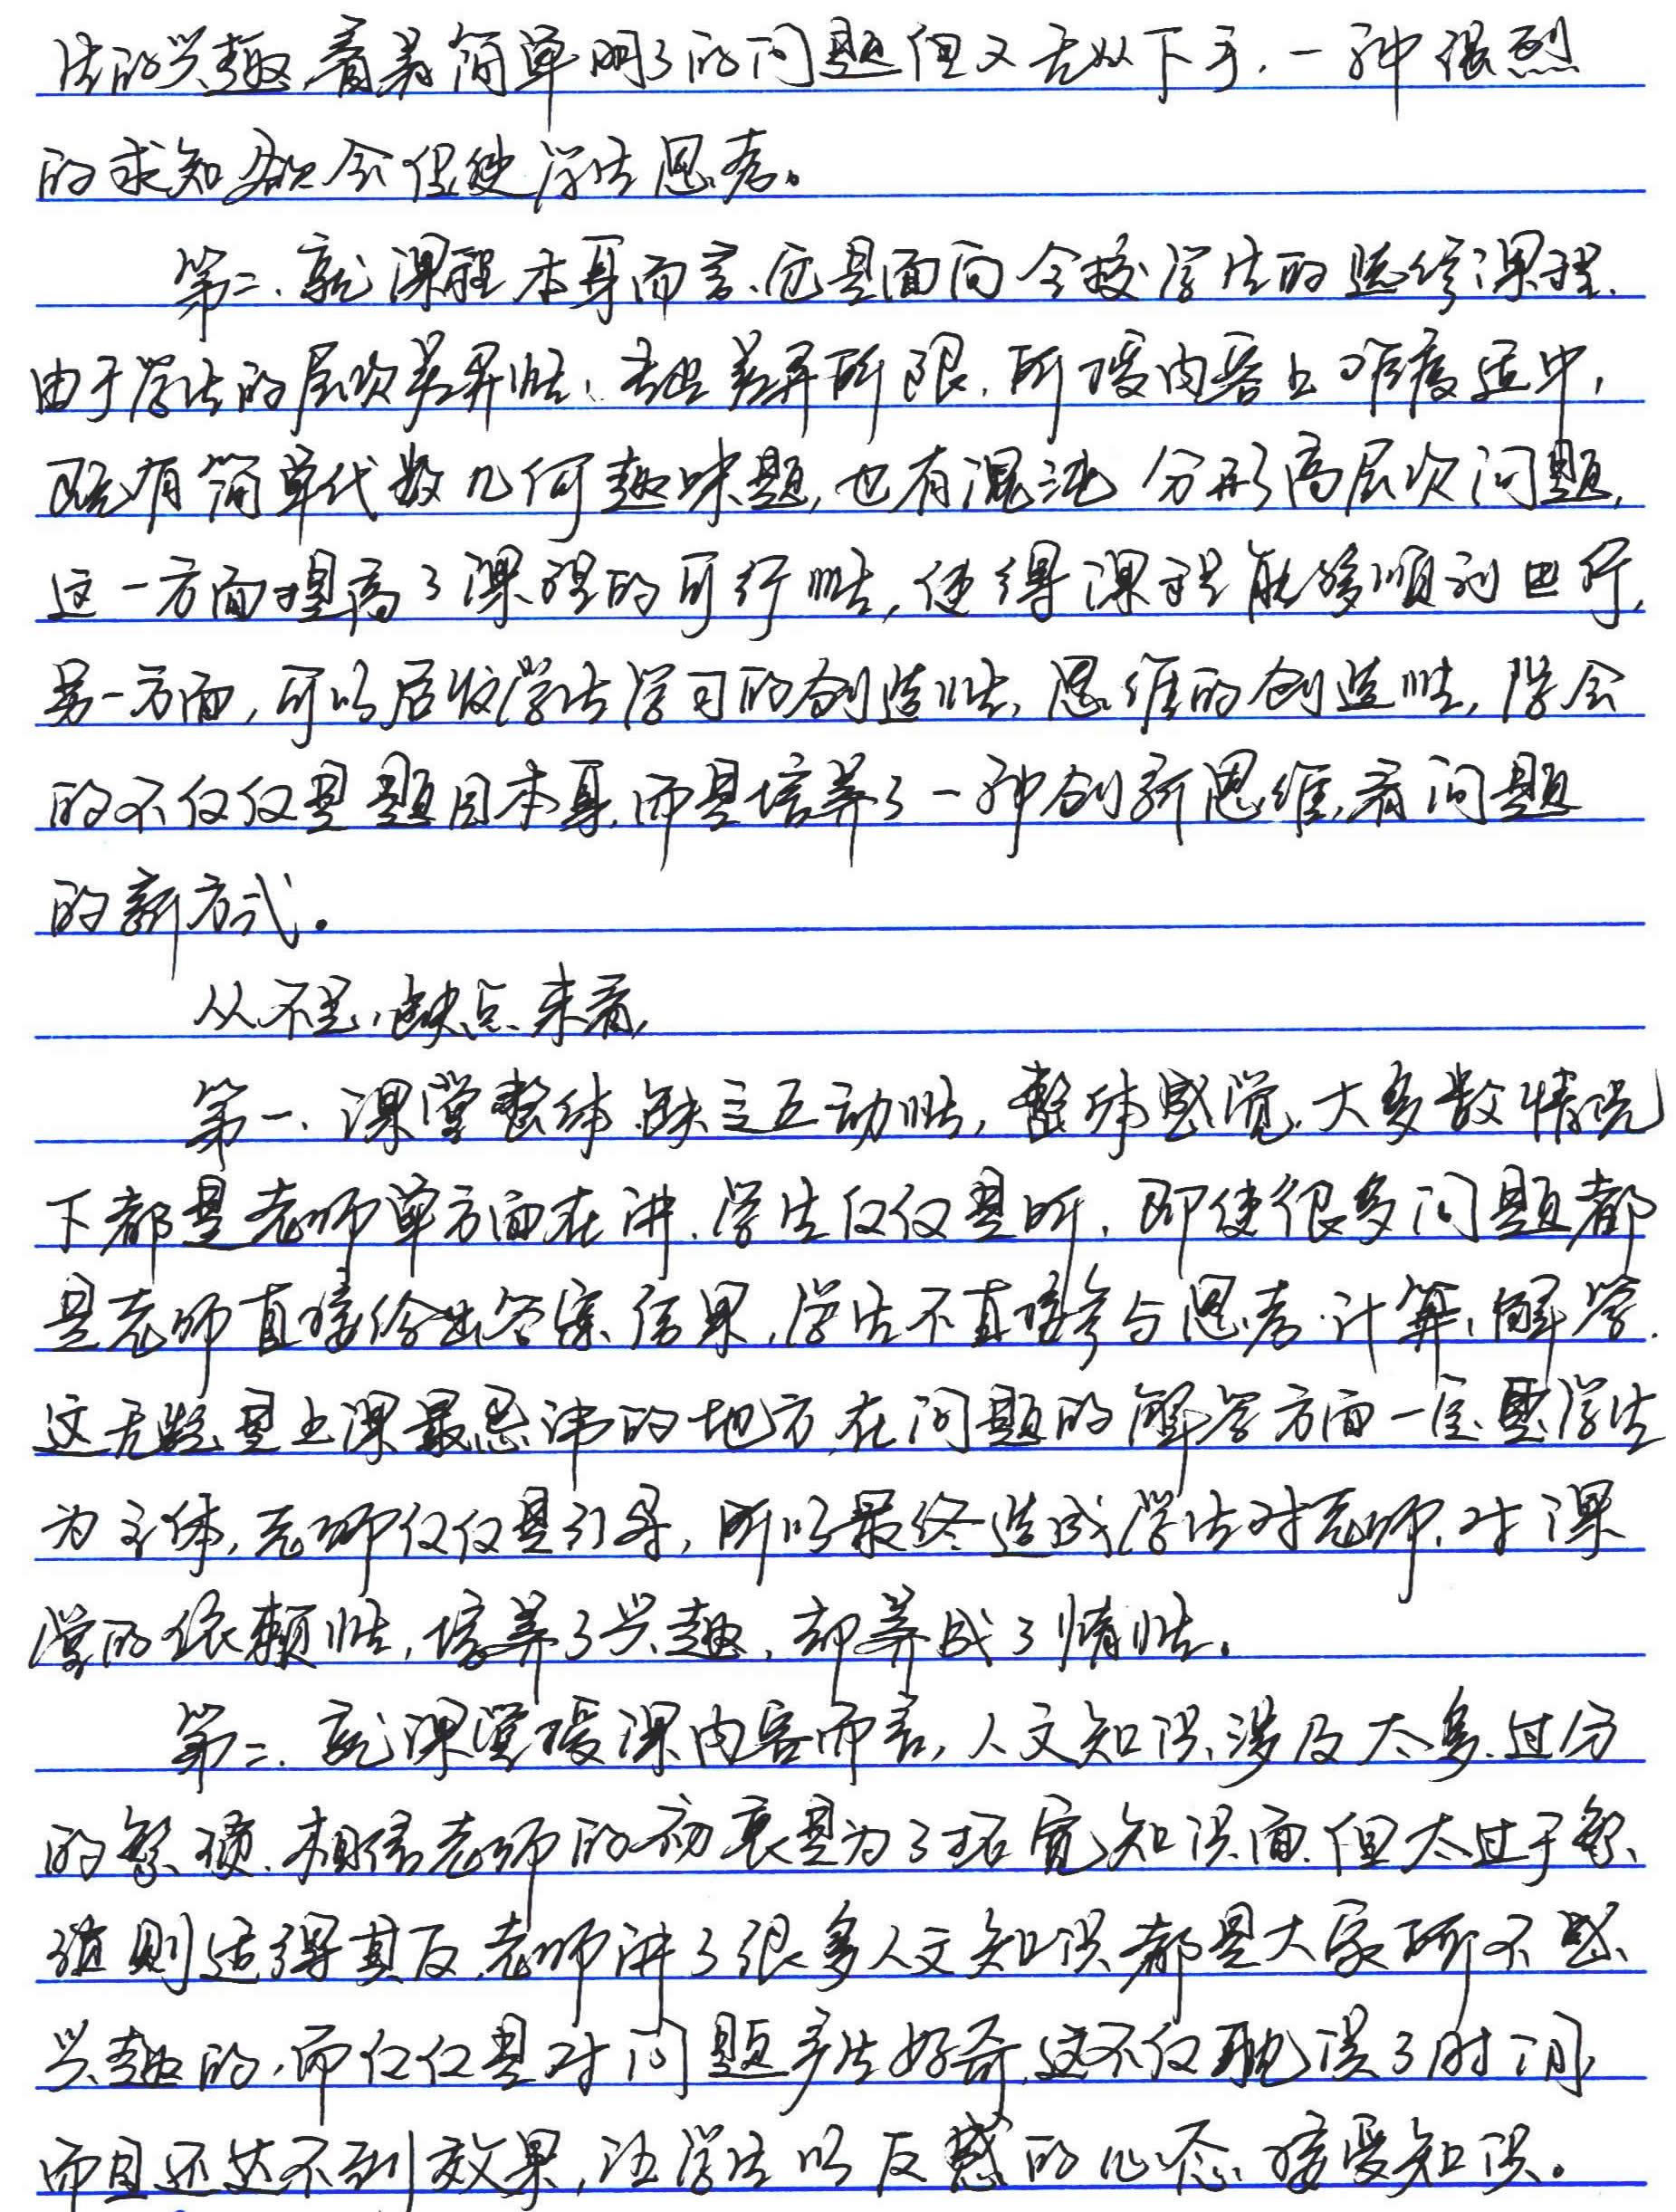 生的兴趣,看着简单明了的问题但又无从下手,一种强烈
的求知欲会促使学生思考。
第二、就课程本身而言、它是面向全校学生的选修课程,
由于学生的层次差异性、专业差异所限,所授内容上难度适中,
既有简单代数几何趣味题,也有混沌 分形高层次问题,
这一方面提高了课程的可行性,使得课程能够顺利进行,
另一方面,可以启发学生学习的创造性,思维的创造性,学会
的不仅仅是题目本身,而是培养了一种创新思维,看问题
的新方式。
从不足,缺点来看,
第一、课堂整体缺乏互动性,整体感觉,大多数情况
下都是老师单方面在讲,学生仅仅是听,即使很多问题都
是老师直接给出答案、结果,学生不直接参与思考、计算、解答.
这无疑是上课最忌讳的地方,在问题的解答方面一定是学生
为主体,老师仅仅是引导,所以最终造成学生对老师,对课
堂的依赖性,培养了兴趣,却养成了惰性。
第二、就课堂授课内容而言,人文知识涉及太多,过分
的繁琐,相信老师的初衷是为了拓宽知识面,但太过于繁
琐则适得其反,老师讲了很多人文知识都是大家所不感
兴趣的,而仅仅是对问题产生好奇,这不仅耽误了时间,
而且还达不到效果,让学生以反感的心态接受知识。